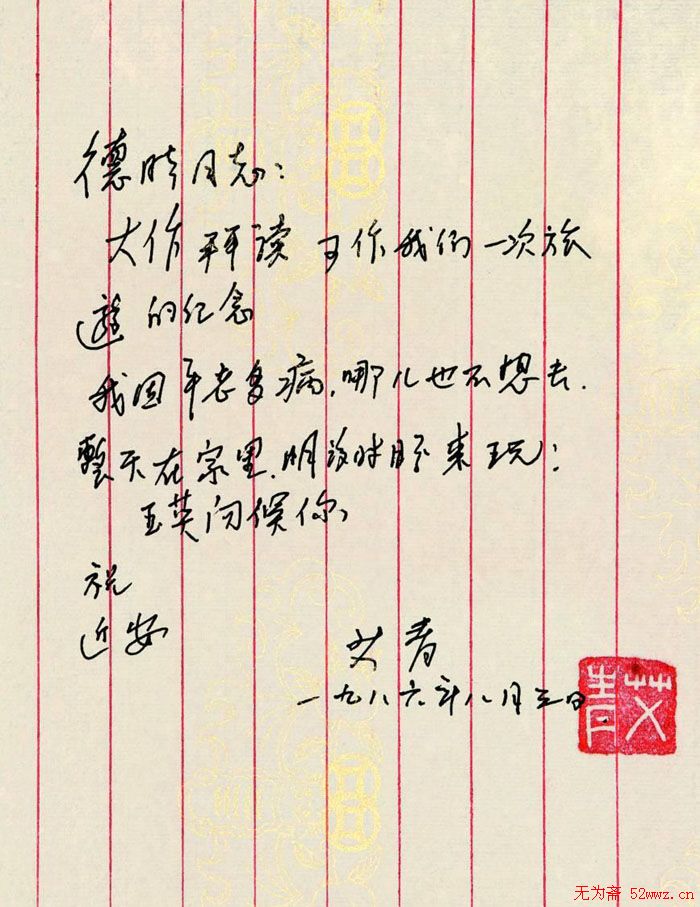 德 同志：
大作拜读 可作我们一次旅
遊的纪念
我因年老多病，哪儿也不想去.
整天在家里. 来玩；
玉英问候你，
祝
近安
艾青
一九八六年八月 日
艾青
无为斋 52wwz.cn